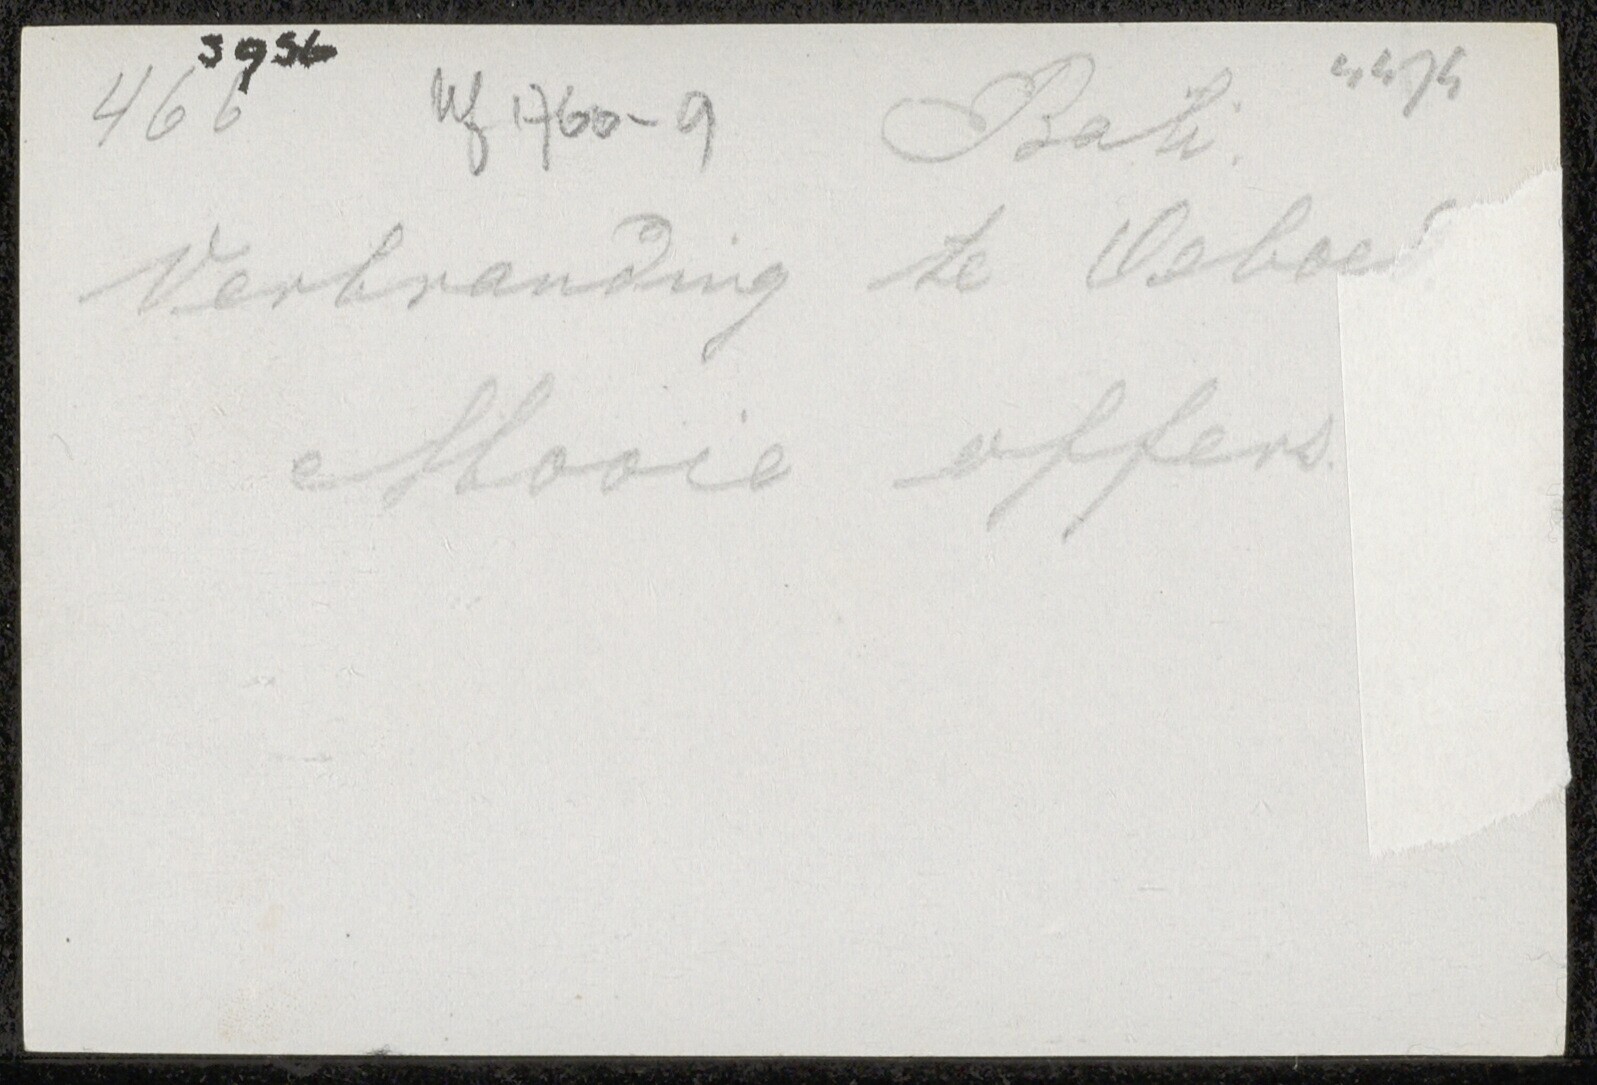 3956
466 Wf 1760-9 Bali. 4474
Verbranding te Oeboed.
Mooie offers.